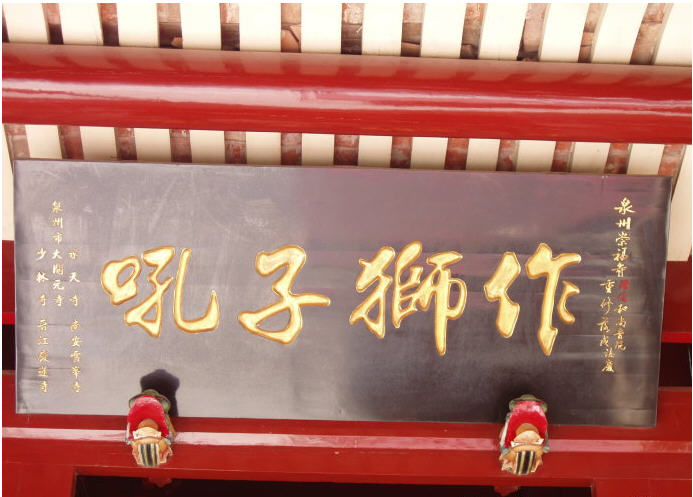 泉州崇福寺
和尚晋院
重修落成誌慶
作獅子吼
承天寺 南安雪峯寺
泉州市大開元寺
少林寺 晋江龍道寺